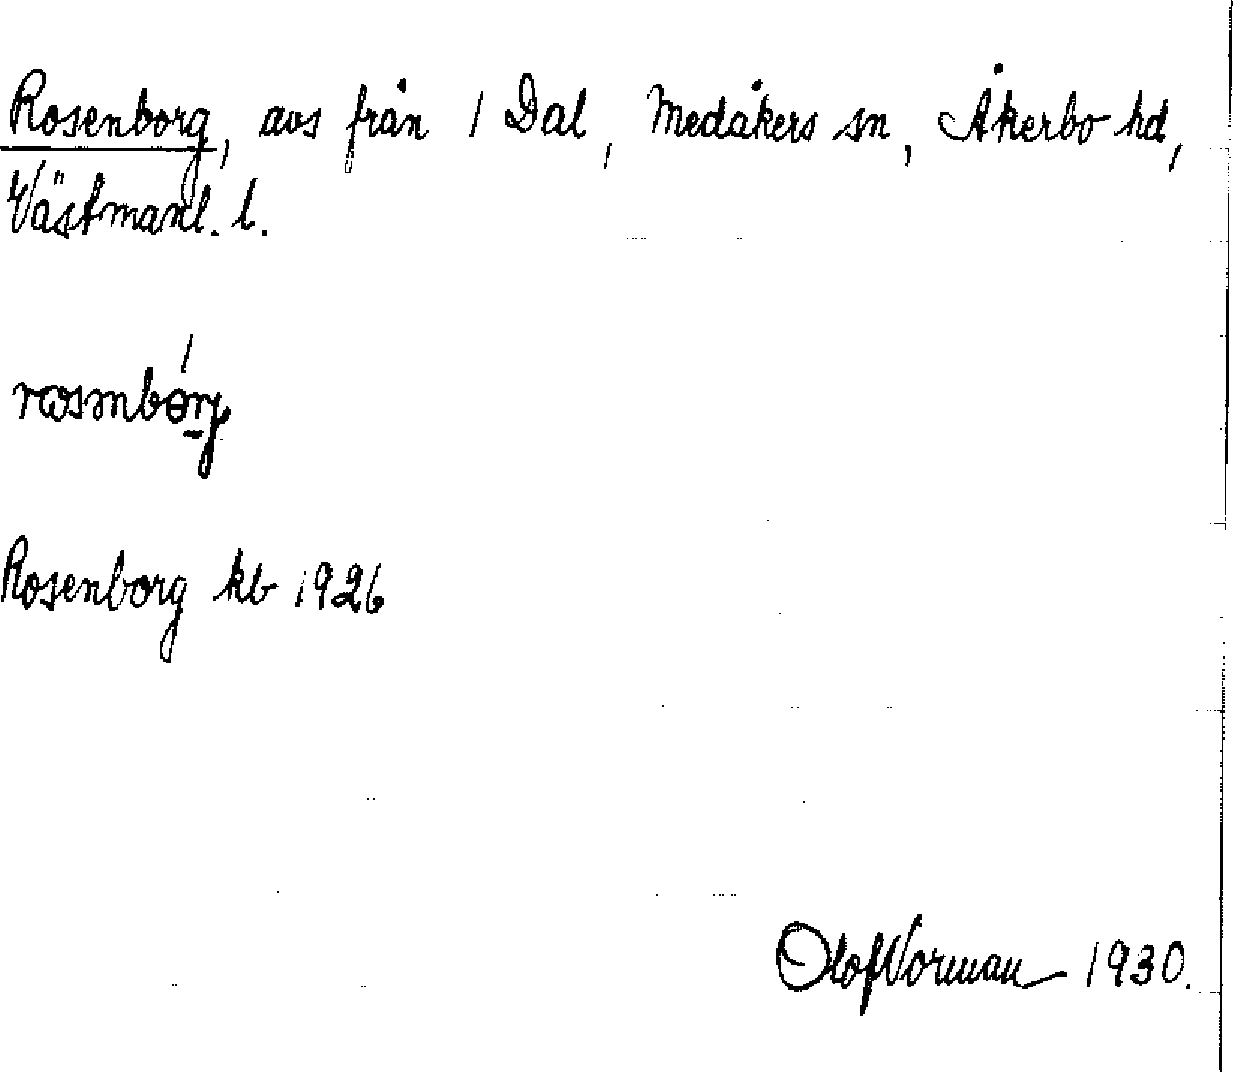 Rosenborg, avs från 1 Dal, Medåkers sn, Åkerbo hd,
Västmanl. l.
Rosenborg kb 1926
Olof Norman 1930.